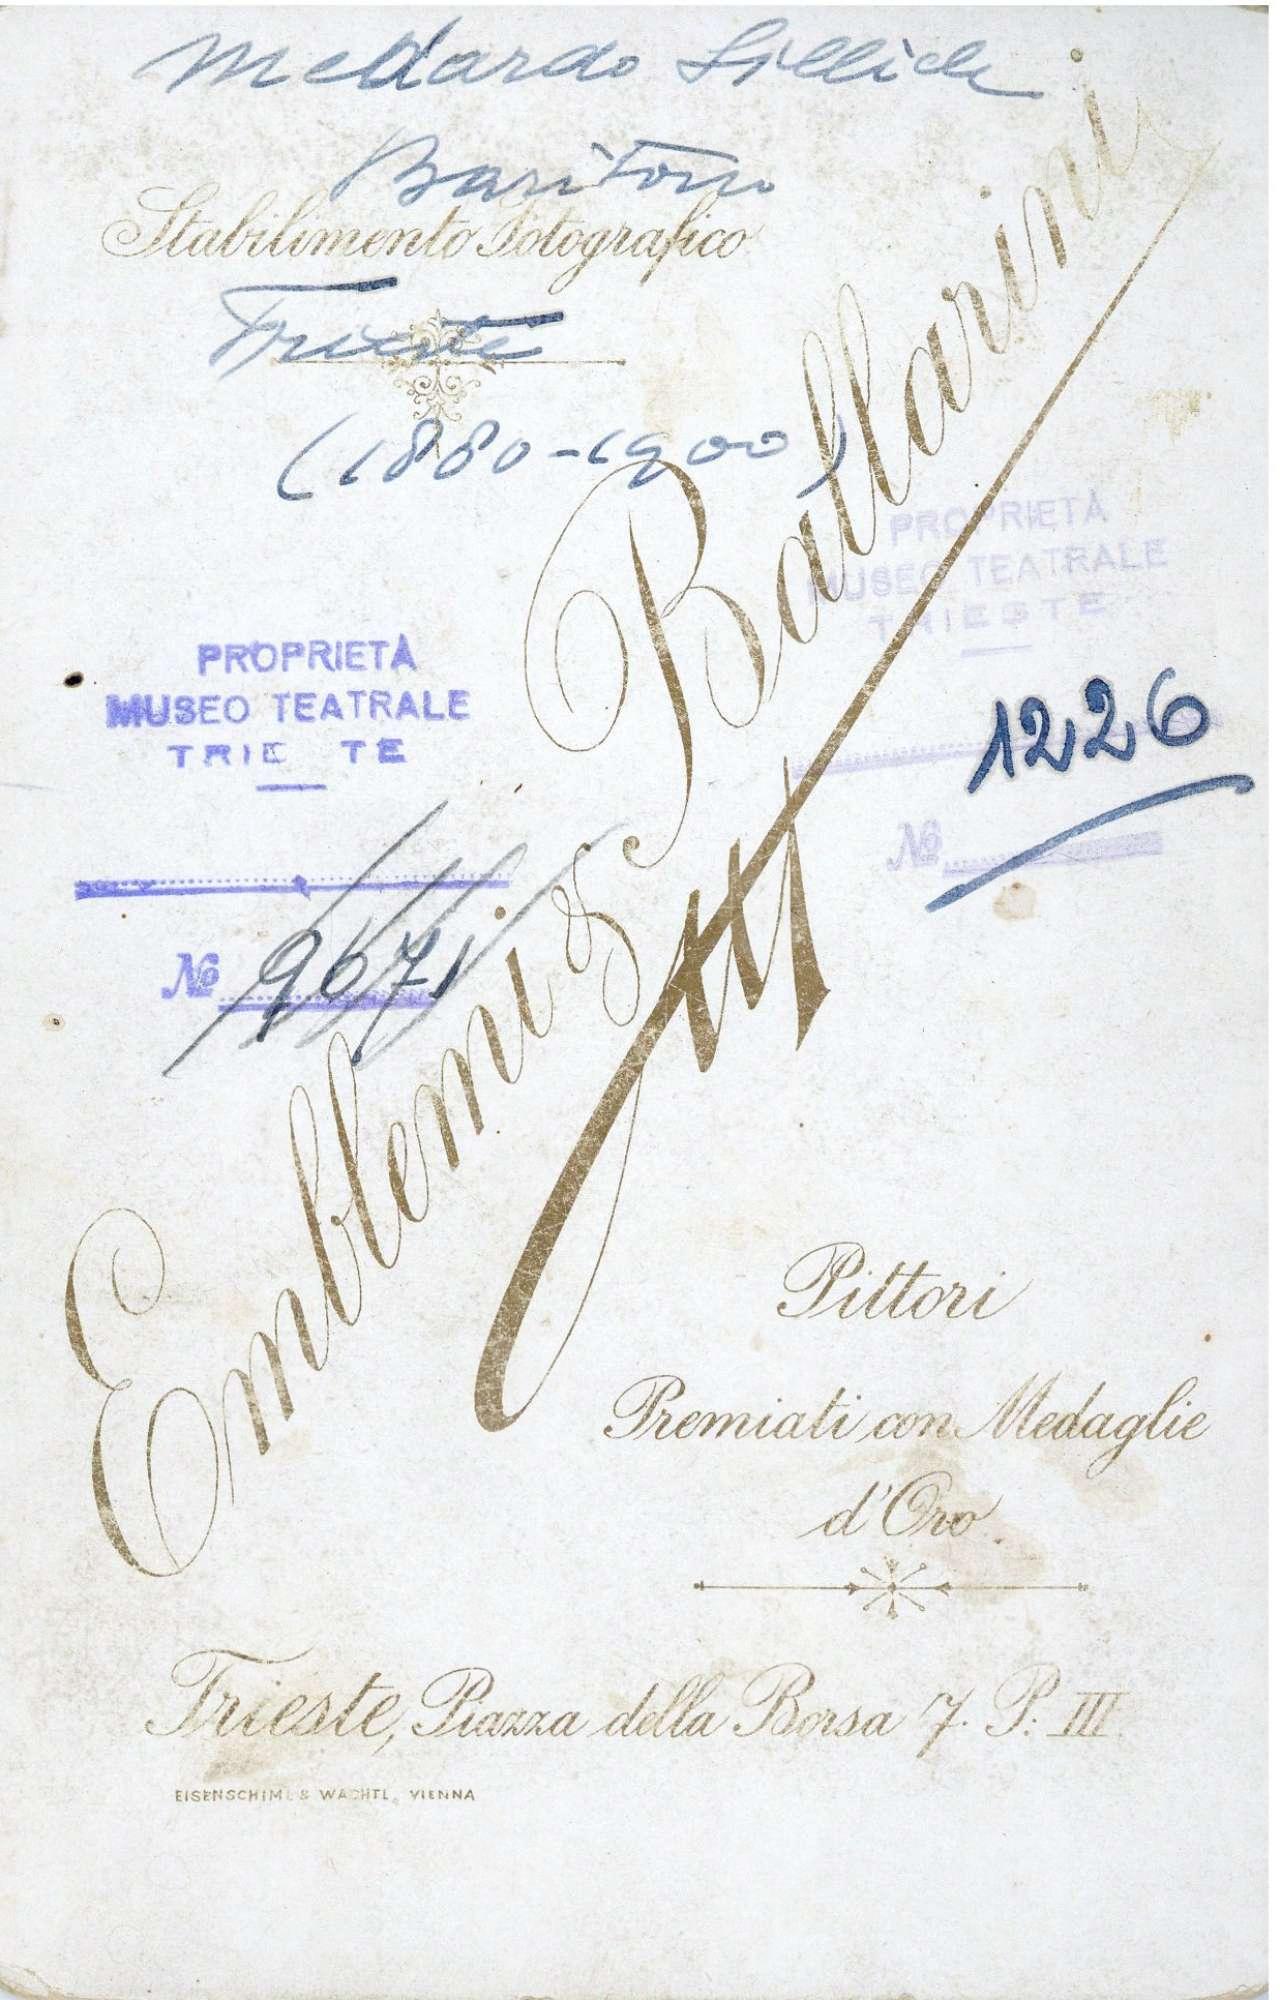 Medardo Sillich
Baritono
Stabilimento Fotografico
Trieste
(1880-1900)
Emblemi & Ballarini
PROPRIETÀ
MUSEO TEATRALE
TRIESTE
PROPRIETÀ
MUSEO TEATRALE
TRIE TE
1226
№
№ 9671
Pittori
Premiati con Medaglie
d'Oro
Trieste, Piazza della Borsa 7. P. III
EISENSCHIML & WACHTL, VIENNA